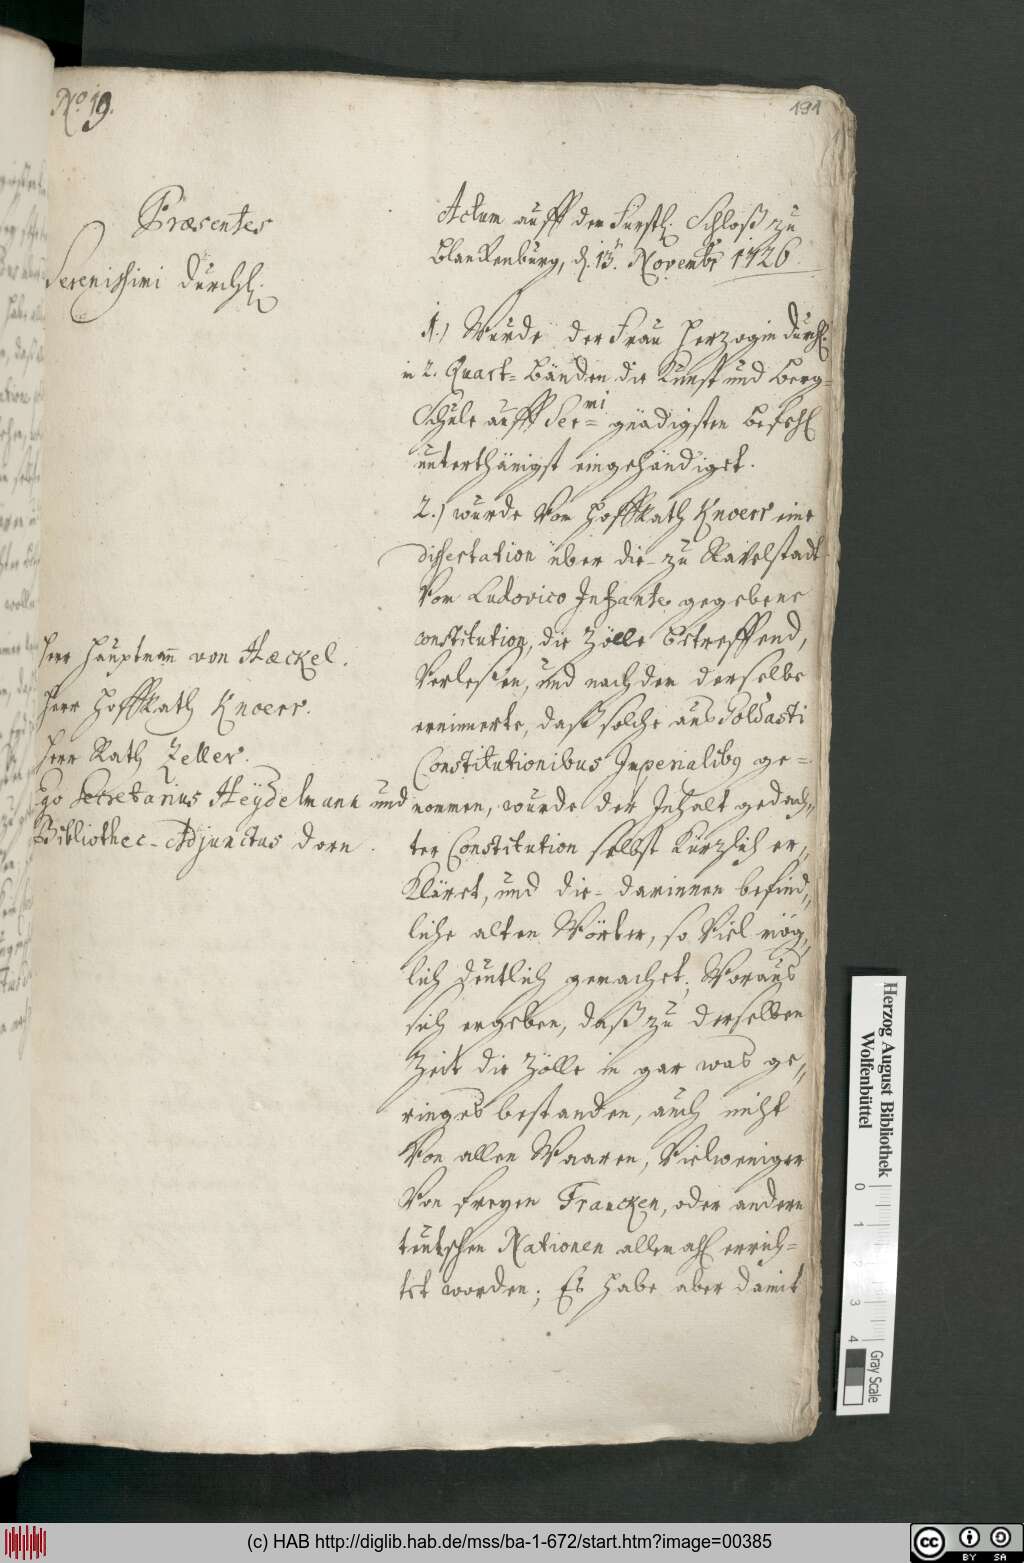 No 19.
191
Præsentes
Serenissimi Durchl.
Herr Hauptmann von Hæckel.
Herr HoffRath Knoerr.
Herr Rath Zeller.
Ego Secretarius Heydelmann und
Bibliothec-Adjunctus Dorn.
Actum auff dem Fürstl. Schloß zu
Blanckenburg, d. 13t. Novembr 1726.
1.) Wurde der Frau Herzogin Durchl.
in 2. Quart-Bänden die Kunst und Berg-
Schule auff Ser=mi gnädigsten Befehl
unterthänigst eingehändiget.
2.) wurde Von HoffRath Knoerr eine
dissertation über die zu Ravelstadt
Von Ludovico Infante gegebene
constitution, die Zölle betreffend,
Verlesen, und nachdem derselbe
erinnerte, daß solche aus Goldasti
Constitutionibus Imperialibus ge=
nommen, wurde der Inhalt gedach„
ter Constitution selbst kürzlich er„
kläret, und die darinnen befind„
liche alten Wörter, so Viel mög„
lich deutlich gemachet; Woraus
sich ergeben, daß zu derselben
Zeit die Zölle in gar was ge„
ringes bestanden, auch nicht
Von allen Waaren, Vielweniger
Von freyen Francken, oder andern
teutschen Nationen allemahl errich=
tet worden; Es habe aber damit
Herzog August Bibliothek
Wolfenbüttel
0 1 2 3 4
Gray Scale
(c) HAB http://diglib.hab.de/mss/ba-1-672/start.htm?image=00385
cc BY SA